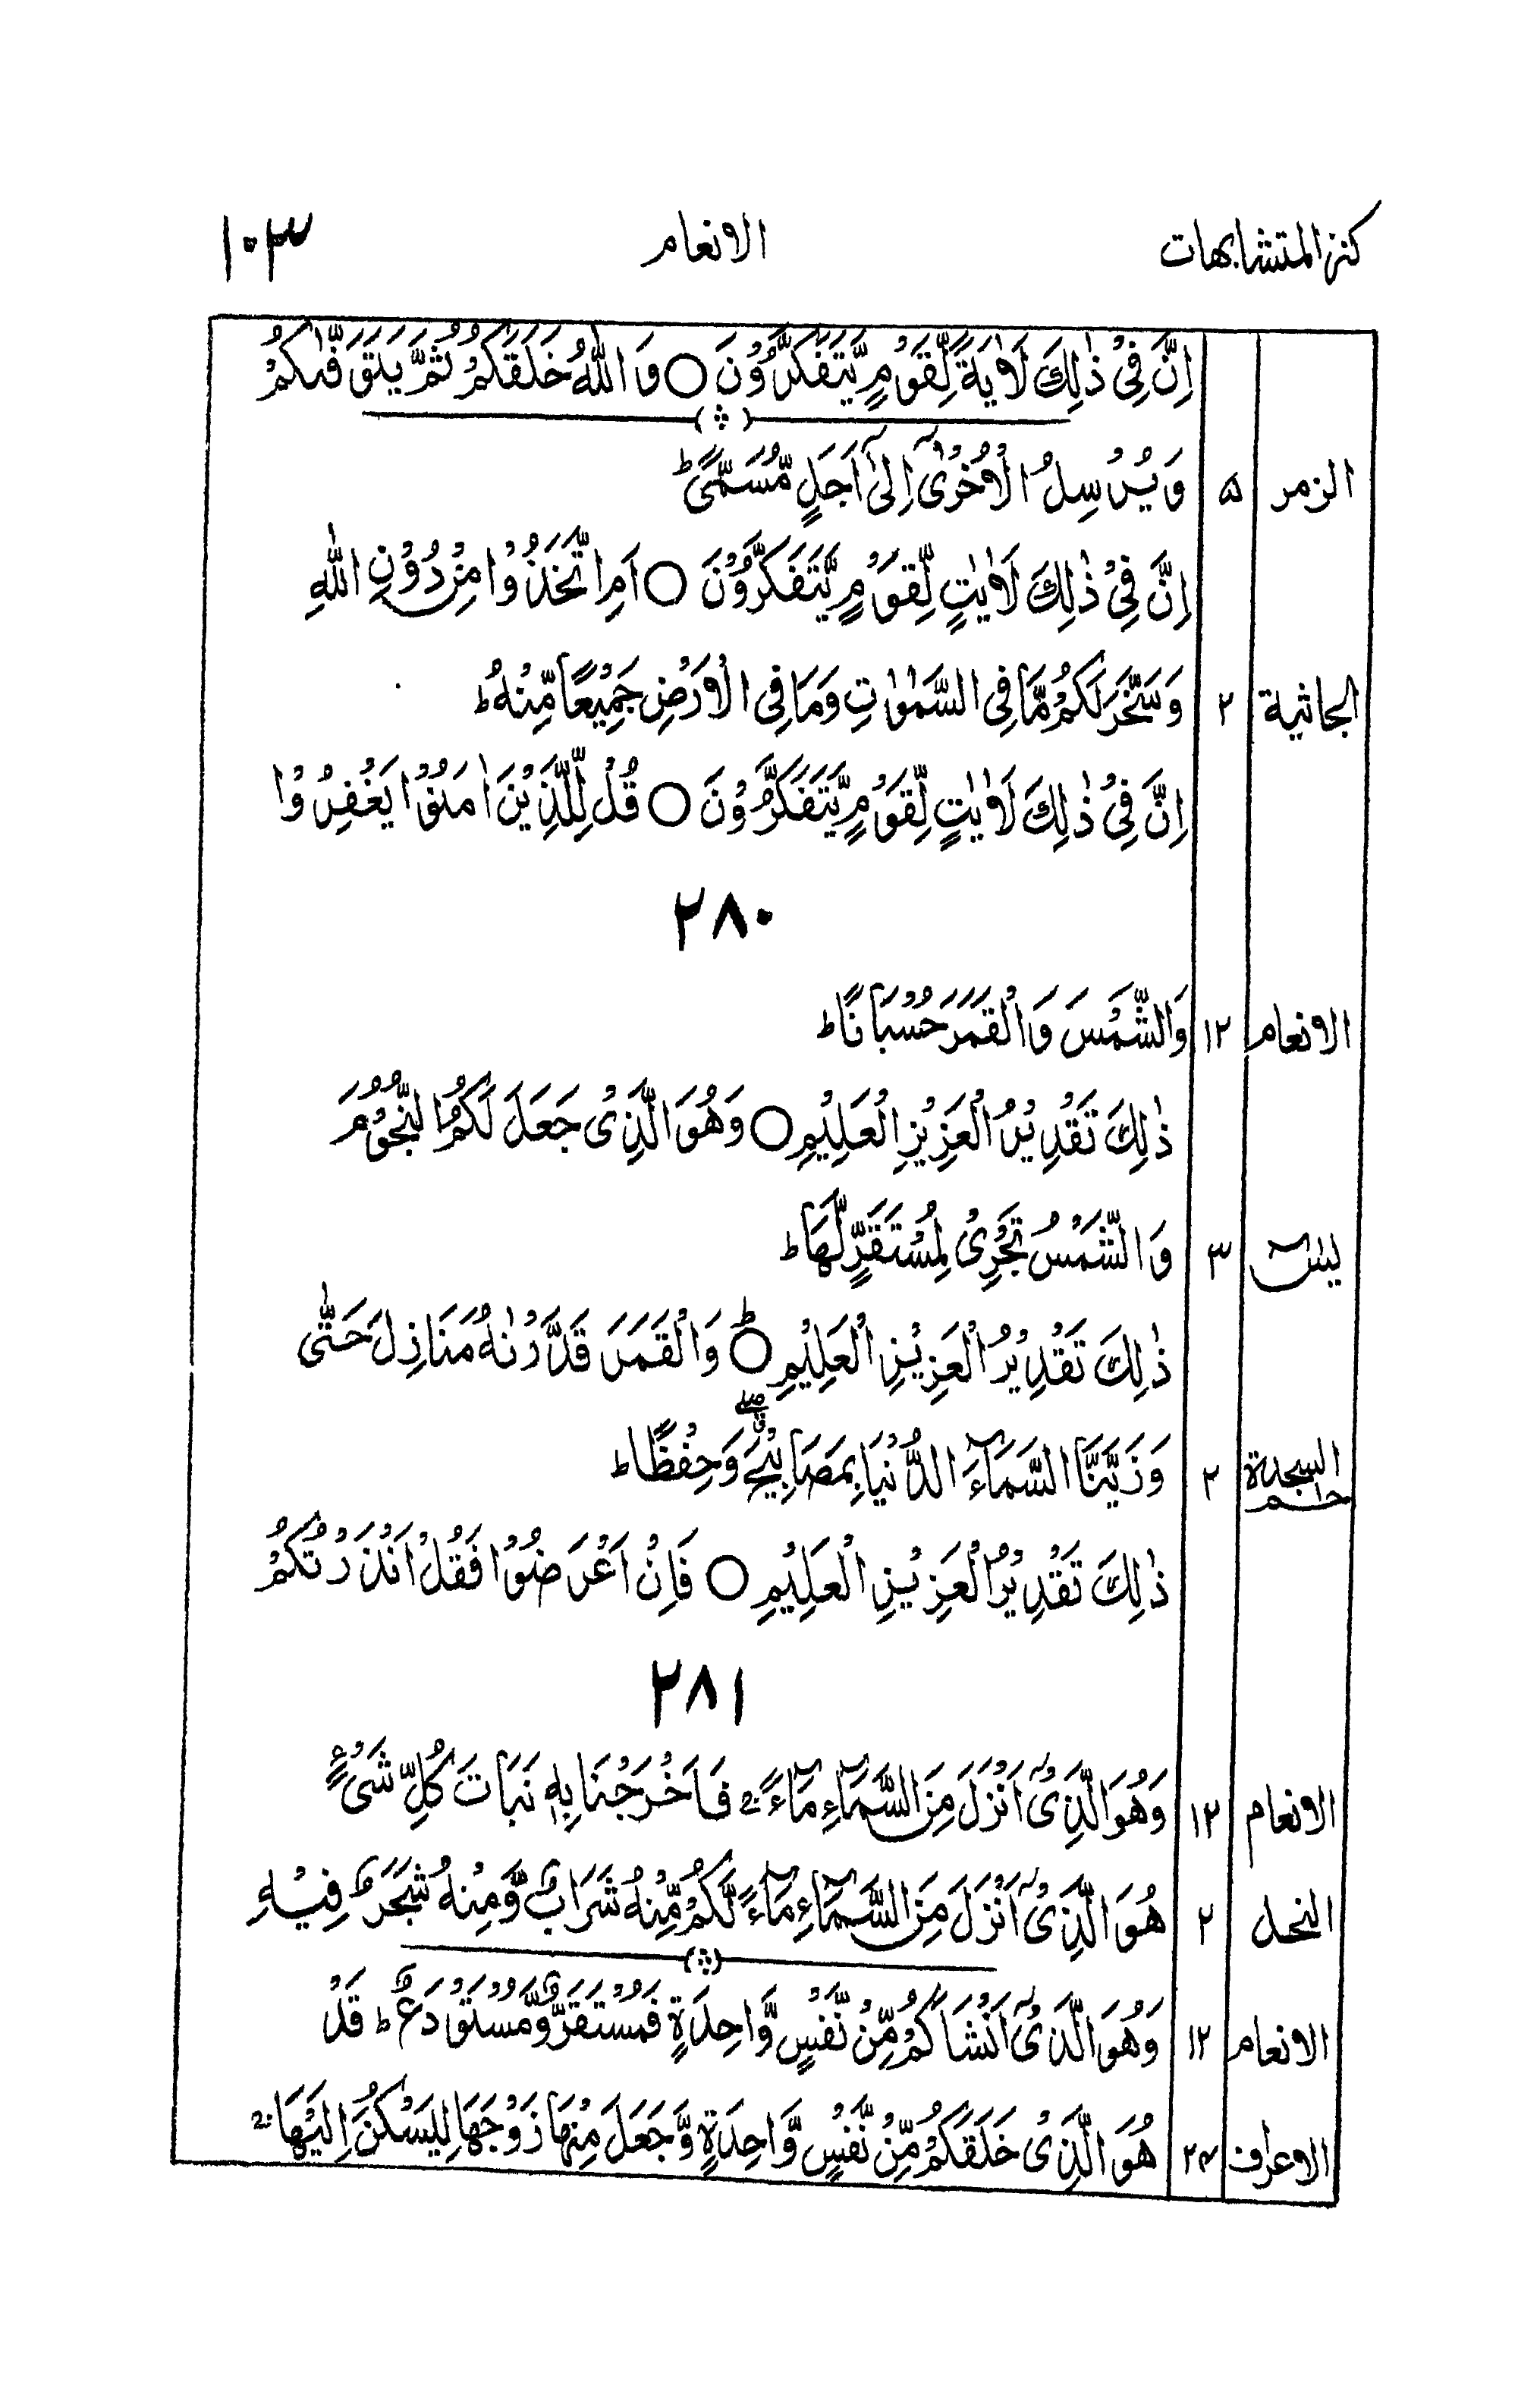 كنز المتشابهات الانعام ۱۰۳
اِنَّ فِیْ ذٰلِكَ لَاٰیَةً لِّقَوْمٍ یَّتَفَكَّرُوْنَ ○ وَ اللّٰهُ خَلَقَكُمْ ثُمَّ یَتَوَفّٰىكُمْ
الزمر ۵ وَ یُرْسِلُ الْاُخْرٰۤی اِلٰۤی اَجَلٍ مُّسَمًّی ؕ
اِنَّ فِیْ ذٰلِكَ لَاٰیٰتٍ لِّقَوْمٍ یَّتَفَكَّرُوْنَ ○ اَمِ اتَّخَذُوْا مِنْ دُوْنِ اللّٰهِ
الجاثیة ۲ وَ سَخَّرَ لَكُمْ مَّا فِی السَّمٰوٰتِ وَ مَا فِی الْاَرْضِ جَمِیْعًا مِّنْهُ ؕ
اِنَّ فِیْ ذٰلِكَ لَاٰیٰتٍ لِّقَوْمٍ یَّتَفَكَّرُوْنَ ○ قُلْ لِّلَّذِیْنَ اٰمَنُوْا یَغْفِرُوْا
۲۸۰
الانعام ۱۲ وَالشَّمْسَ وَ الْقَمَرَ حُسْبَانًا ؕ
ذٰلِكَ تَقْدِیْرُ الْعَزِیْزِ الْعَلِیْمِ ○ وَ هُوَ الَّذِیْ جَعَلَ لَكُمُ النُّجُوْمَ
یٰسٓ ۳ وَ الشَّمْسُ تَجْرِیْ لِمُسْتَقَرٍّ لَّهَا ؕ
ذٰلِكَ تَقْدِیْرُ الْعَزِیْزِ الْعَلِیْمِ ○ؕ وَ الْقَمَرَ قَدَّرْنٰهُ مَنَازِلَ حَتّٰی
السجدة حٰم ۲ وَ زَیَّنَّا السَّمَآءَ الدُّنْیَا بِمَصَابِیْحَ ۖۗ وَ حِفْظًا ؕ
ذٰلِكَ تَقْدِیْرُ الْعَزِیْزِ الْعَلِیْمِ ○ فَاِنْ اَعْرَضُوْا فَقُلْ اَنْذَرْتُكُمْ
۲۸۱
الانعام ۱۲ وَ هُوَ الَّذِیْۤ اَنْزَلَ مِنَ السَّمَآءِ مَآءً ۚ فَاَخْرَجْنَا بِهٖ نَبَاتَ كُلِّ شَیْءٍ
النحل ۲ هُوَ الَّذِیْۤ اَنْزَلَ مِنَ السَّمَآءِ مَآءً لَّكُمْ مِّنْهُ شَرَابٌ وَّ مِنْهُ شَجَرٌ فِیْهِ
الانعام ۱۲ وَ هُوَ الَّذِیْۤ اَنْشَاَكُمْ مِّنْ نَّفْسٍ وَّاحِدَةٍ فَمُسْتَقَرٌّ وَّ مُسْتَوْدَعٌ ؕ قَدْ
الاعراف ۲۴ هُوَ الَّذِیْ خَلَقَكُمْ مِّنْ نَّفْسٍ وَّاحِدَةٍ وَّ جَعَلَ مِنْهَا زَوْجَهَا لِیَسْكُنَ اِلَیْهَا ۚ